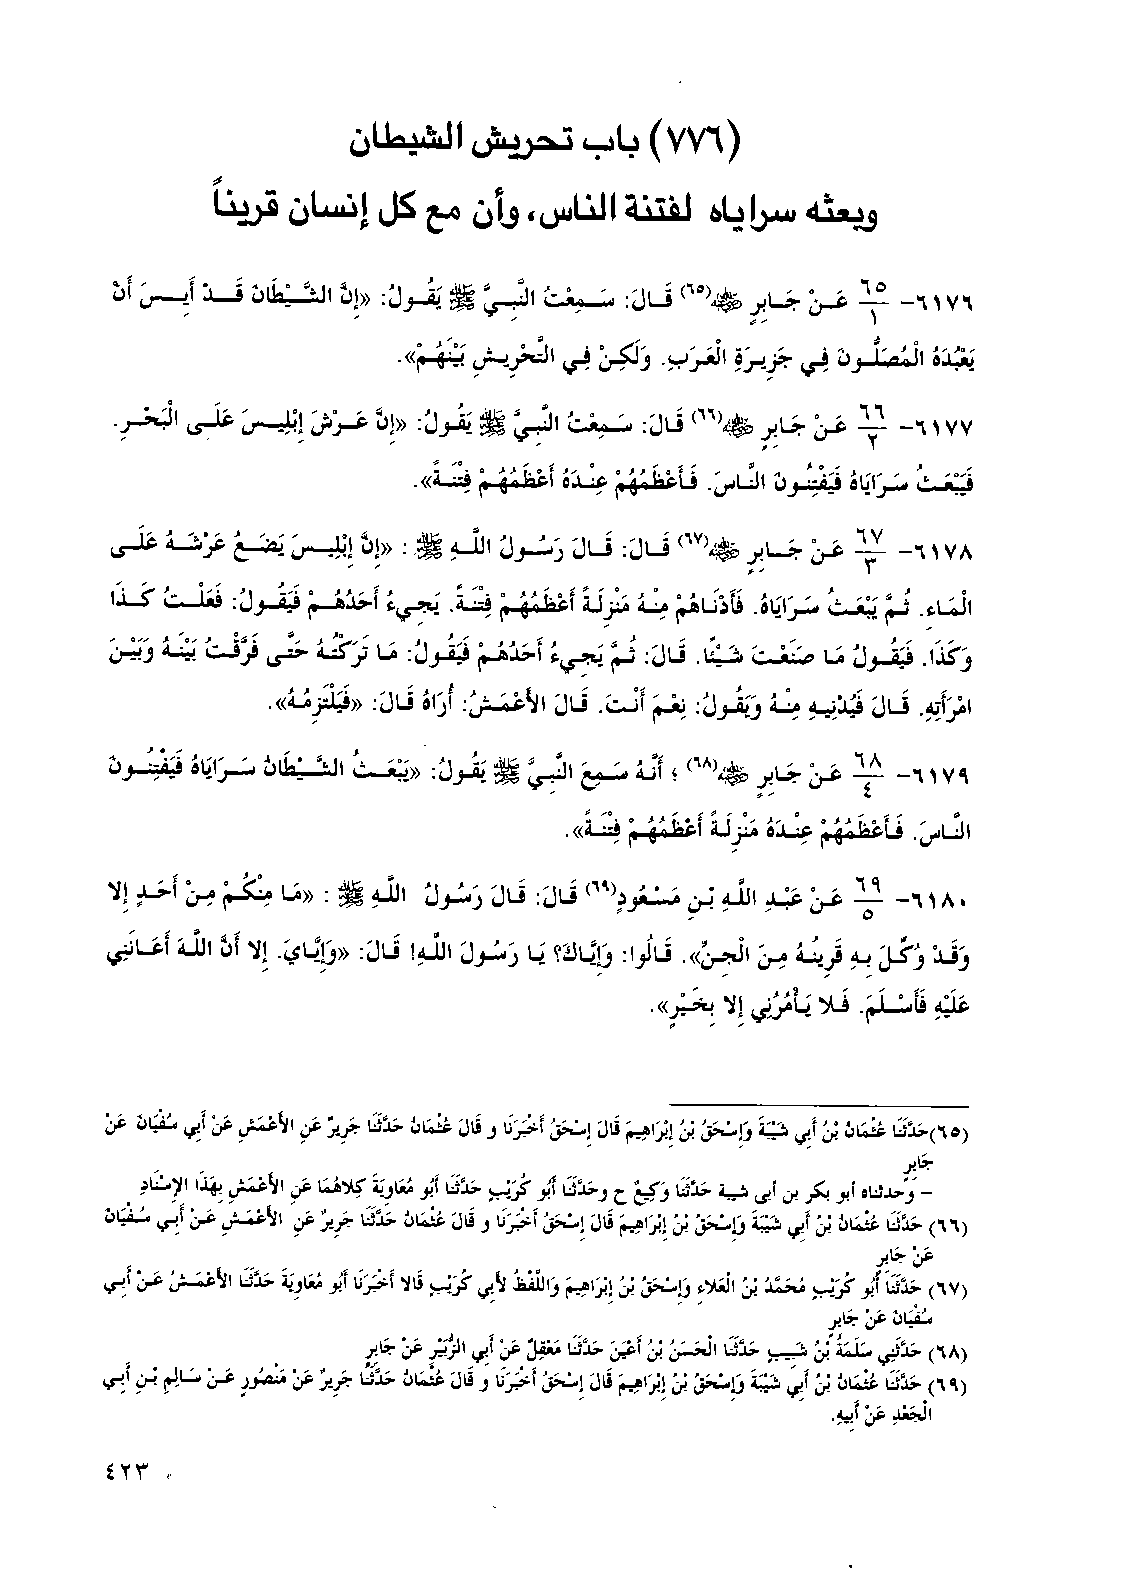 (٧٧٦) باب تحريش الشيطان
وبعثه سراياه لفتنة الناس، وأن مع كل إنسان قريناً
٦١٧٦- ٦٥/١ عَنْ جَابِرٍ ﷺ(٦٥) قَالَ: سَمِعْتُ النَّبِيَّ ﷺ يَقُولُ: «إِنَّ الشَّيْطَانَ قَدْ أَيِسَ أَنْ
يَعْبُدَهُ الْمُصَلُّونَ فِي جَزِيرَةِ الْعَرَبِ. وَلَكِنْ فِي التَّحْرِيشِ بَيْنَهُمْ».
٦١٧٧- ٦٦/٢ عَنْ جَابِرٍ ﷺ(٦٦) قَالَ: سَمِعْتُ النَّبِيَّ ﷺ يَقُولُ: «إِنَّ عَرْشَ إِبْلِيسَ عَلَى الْبَحْرِ.
فَيَبْعَثُ سَرَايَاهُ فَيَفْتِنُونَ النَّاسَ. فَأَعْظَمُهُمْ عِنْدَهُ أَعْظَمُهُمْ فِتْنَةً».
٦١٧٨- ٦٧/٣ عَنْ جَابِرٍ ﷺ(٦٧) قَالَ: قَالَ رَسُولُ اللَّهِ ﷺ : «إِنَّ إِبْلِيسَ يَضَعُ عَرْشَهُ عَلَى
الْمَاءِ. ثُمَّ يَبْعَثُ سَرَايَاهُ. فَأَدْنَاهُمْ مِنْهُ مَنْزِلَةً أَعْظَمُهُمْ فِتْنَةً. يَجِيءُ أَحَدُهُمْ فَيَقُولُ: فَعَلْتُ كَذَا
وَكَذَا. فَيَقُولُ مَا صَنَعْتَ شَيْئًا. قَالَ: ثُمَّ يَجِيءُ أَحَدُهُمْ فَيَقُولُ: مَا تَرَكْتُهُ حَتَّى فَرَّقْتُ بَيْنَهُ وَبَيْنَ
امْرَأَتِهِ. قَالَ فَيُدْنِيهِ مِنْهُ وَيَقُولُ: نِعْمَ أَنْتَ. قَالَ الأَعْمَشُ: أُرَاهُ قَالَ: «فَيَلْتَزِمُهُ».
٦١٧٩- ٦٨/٤ عَنْ جَابِرٍ ﷺ(٦٨) ؛ أَنَّهُ سَمِعَ النَّبِيَّ ﷺ يَقُولُ: «يَبْعَثُ الشَّيْطَانُ سَرَايَاهُ فَيَفْتِنُونَ
النَّاسَ. فَأَعْظَمُهُمْ عِنْدَهُ مَنْزِلَةً أَعْظَمُهُمْ فِتْنَةً».
٦١٨٠- ٦٩/٥ عَنْ عَبْدِ اللَّهِ بْنِ مَسْعُودٍ(٦٩) قَالَ: قَالَ رَسُولُ اللَّهِ ﷺ : «مَا مِنْكُمْ مِنْ أَحَدٍ إِلا
وَقَدْ وُكِّلَ بِهِ قَرِينُهُ مِنَ الْجِنِّ». قَالُوا: وَإِيَّاكَ؟ يَا رَسُولَ اللَّهِ! قَالَ: «وَإِيَّايَ. إِلا أَنَّ اللَّهَ أَعَانَنِي
عَلَيْهِ فَأَسْلَمَ. فَلا يَأْمُرُنِي إِلا بِخَيْرٍ».
(٦٥) حَدَّثَنَا عُثْمَانُ بْنُ أَبِي شَيْبَةَ وَإِسْحَقُ بْنُ إِبْرَاهِيمَ قَالَ إِسْحَقُ أَخْبَرَنَا و قَالَ عُثْمَانُ حَدَّثَنَا جَرِيرٌ عَنِ الأَعْمَشِ عَنْ أَبِي سُفْيَانَ عَنْ
جَابِرٍ
- وحدثناه أبو بكر بن أبى شيبة حَدَّثَنَا وَكِيعٌ ح وحَدَّثَنَا أَبُو كُرَيْبٍ حَدَّثَنَا أَبُو مُعَاوِيَةَ كِلاهُمَا عَنِ الأَعْمَشِ بِهَذَا الإِسْنَادِ
(٦٦) حَدَّثَنَا عُثْمَانُ بْنُ أَبِي شَيْبَةَ وَإِسْحَقُ بْنُ إِبْرَاهِيمَ قَالَ إِسْحَقُ أَخْبَرَنَا و قَالَ عُثْمَانُ حَدَّثَنَا جَرِيرٌ عَنِ الأَعْمَشِ عَنْ أَبِي سُفْيَانَ
عَنْ جَابِرٍ
(٦٧) حَدَّثَنَا أَبُو كُرَيْبٍ مُحَمَّدُ بْنُ الْعَلاءِ وَإِسْحَقُ بْنُ إِبْرَاهِيمَ وَاللَّفْظُ لأَبِي كُرَيْبٍ قَالا أَخْبَرَنَا أَبُو مُعَاوِيَةَ حَدَّثَنَا الأَعْمَشُ عَنْ أَبِي
سُفْيَانَ عَنْ جَابِرٍ
(٦٨) حَدَّثَنِي سَلَمَةُ بْنُ شَبِيبٍ حَدَّثَنَا الْحَسَنُ بْنُ أَعْيَنَ حَدَّثَنَا مَعْقِلٌ عَنْ أَبِي الزُّبَيْرِ عَنْ جَابِرٍ
(٦٩) حَدَّثَنَا عُثْمَانُ بْنُ أَبِي شَيْبَةَ وَإِسْحَقُ بْنُ إِبْرَاهِيمَ قَالَ إِسْحَقُ أَخْبَرَنَا و قَالَ عُثْمَانُ حَدَّثَنَا جَرِيرٌ عَنْ مَنْصُورٍ عَنْ سَالِمِ بْنِ أَبِي
الْجَعْدِ عَنْ أَبِيهِ.
٤٢٣